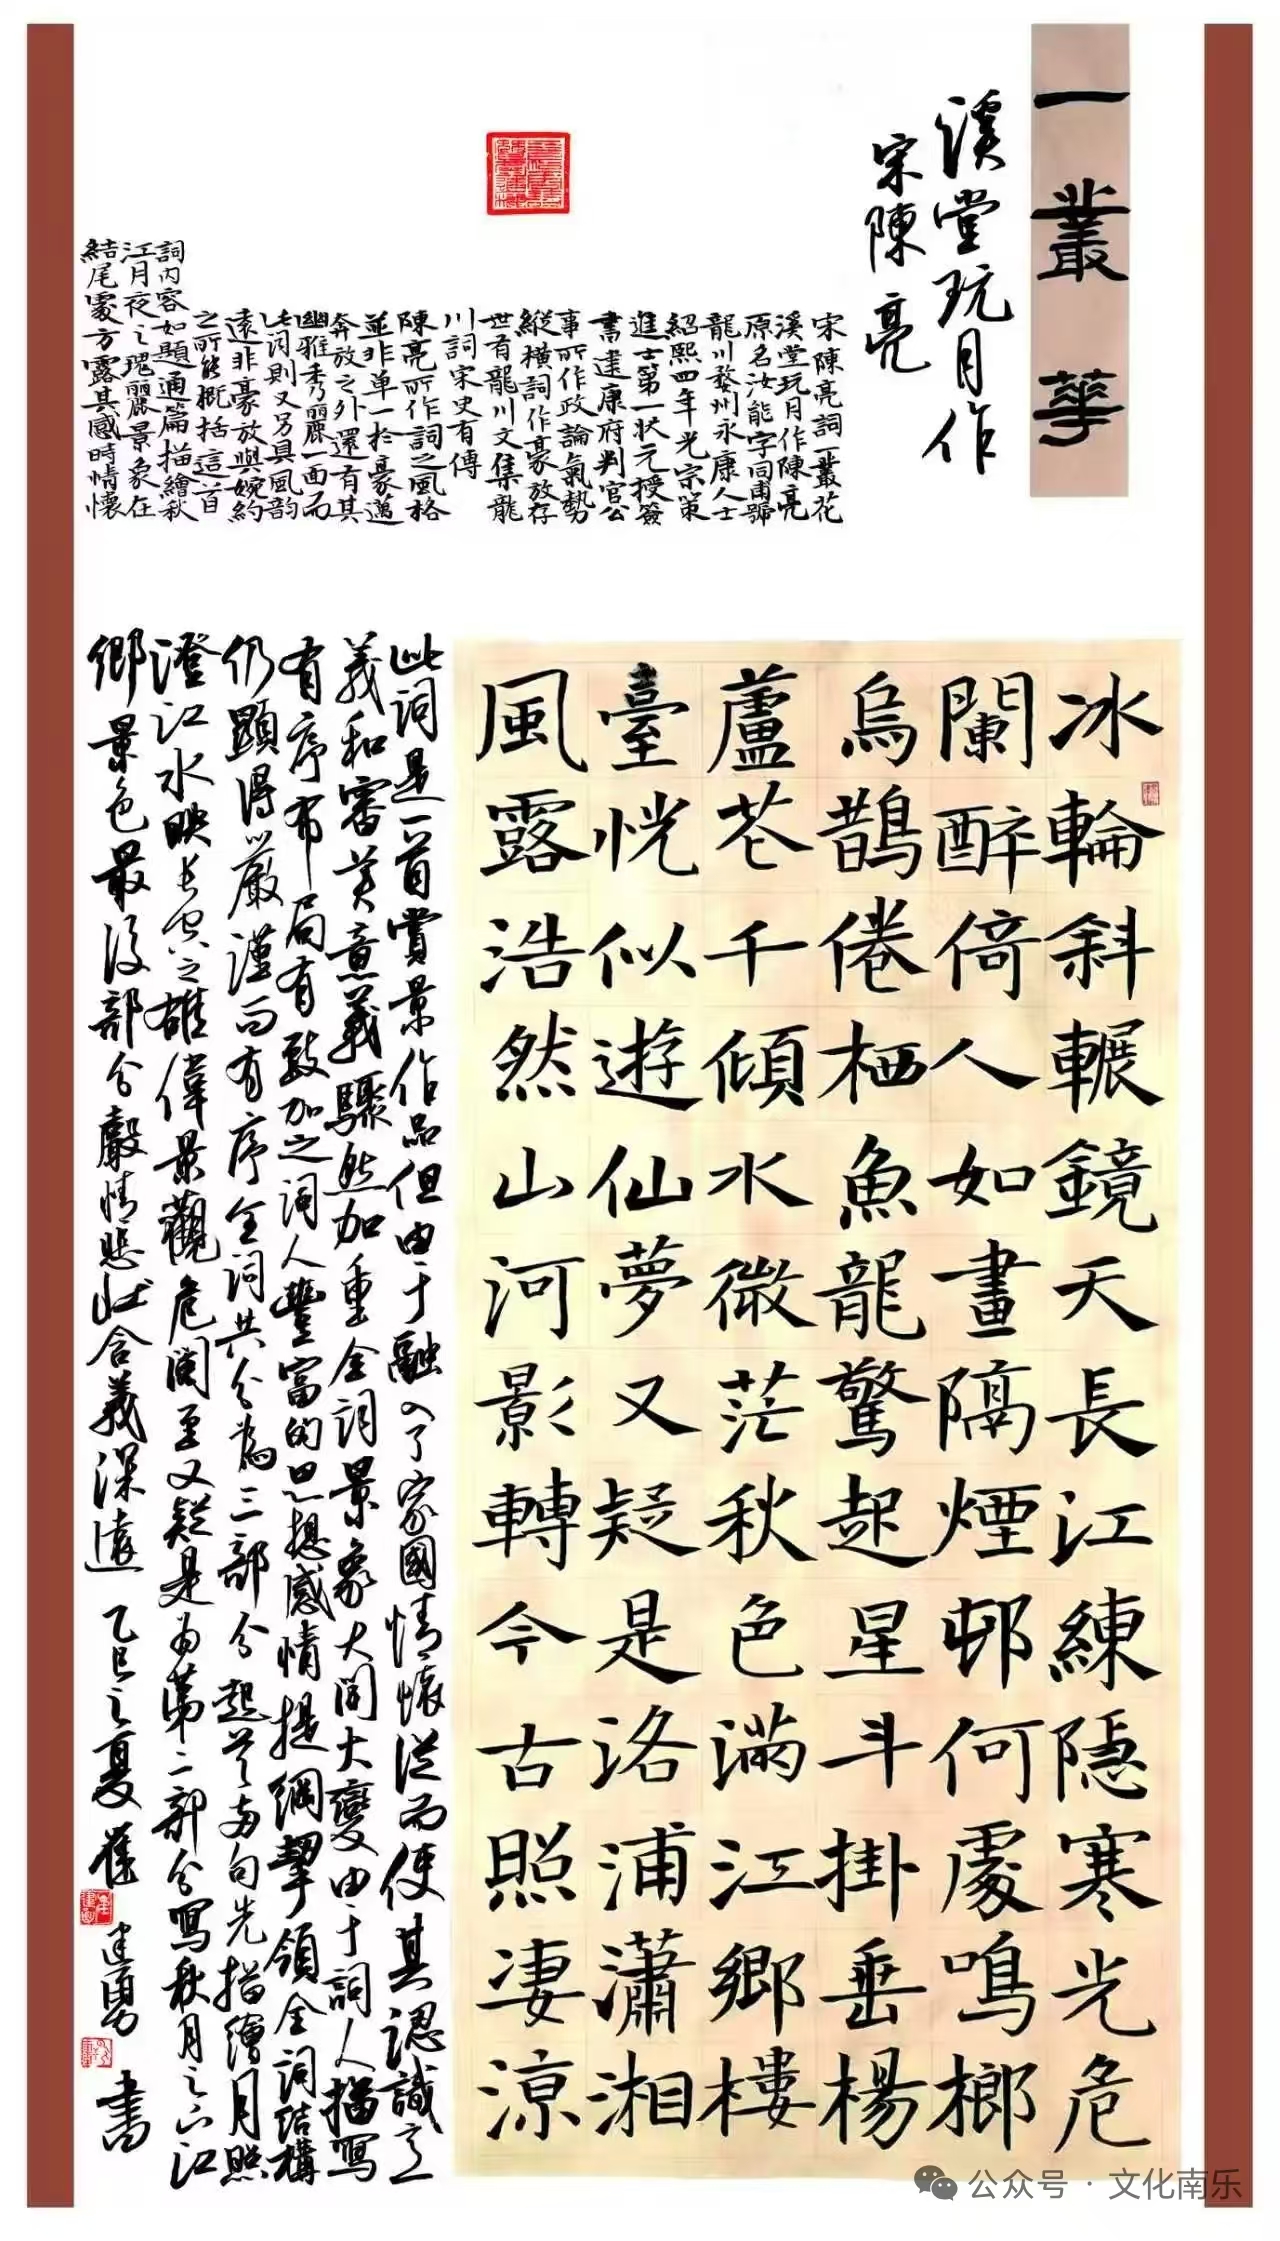 一叢華
溪堂玩月作
宋陳亮
宋陳亮詞一叢花
溪堂玩月作陳亮
原名汝能字同甫號
龍川婺州永康人士
紹熙四年光宗策
進士第一狀元授簽
書建康府判官公
事所作政論氣勢
縱橫詞作豪放存
世有龍川文集龍
川詞宋史有傳
陳亮所作詞之風格
並非单一於豪邁
奔放之外還有其
幽雅秀麗一面而
此詞則又另具風韵
遠非豪放與婉約
之所能概括這首
詞內容如題通篇描繪秋
江月夜之瑰麗景象在
結尾處方露其感時情懷
冰輪斜輾鏡天長江練隱寒光危
闌醉倚人如畫隔煙邨何處鳴榔
烏鵲倦栖魚龍驚起星斗掛垂楊
蘆花千傾水微茫秋色滿江鄉樓
臺恍似遊仙夢又疑是洛浦瀟湘
風露浩然山河影轉今古照凄涼
此詞是一首賞景作品但由于融入了家國情懷從而使其認識意
義和審美意義驟然加重全詞景象大開大變由于詞人描寫
有序布局有致加之詞人豐富的思想感情提綱挈領全詞結構
仍顯得嚴謹而有序全詞共分為三部分起首兩句先描繪月照
澄江水映長空之雄偉景觀危闌至又疑是為第二部分寫秋月之下江
鄉景色最後部分聲情悲壯含義深遠 乙巳之夏 崔建勇書
公众号 · 文化南乐